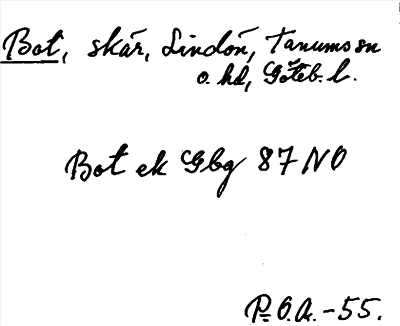 Bot, skär, Lindön, Tanums sn
o. hd, Göteb. l.
Bot ek Gbg 87 NO
P.O.A. -55.